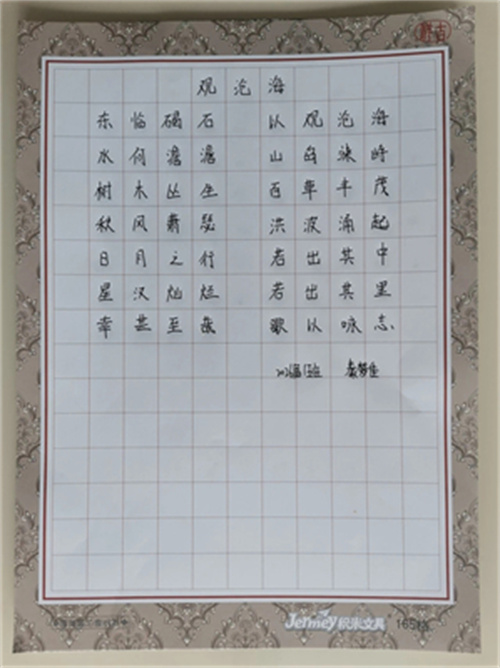 观沧海
东临碣石 以观沧海
水何澹澹 山岛竦峙
树木丛生 百草丰茂
秋风萧瑟 洪波涌起
日月之行 若出其中
星汉灿烂 若出其里
幸甚至哉 歌以咏志
Jermey 积米文具 165格